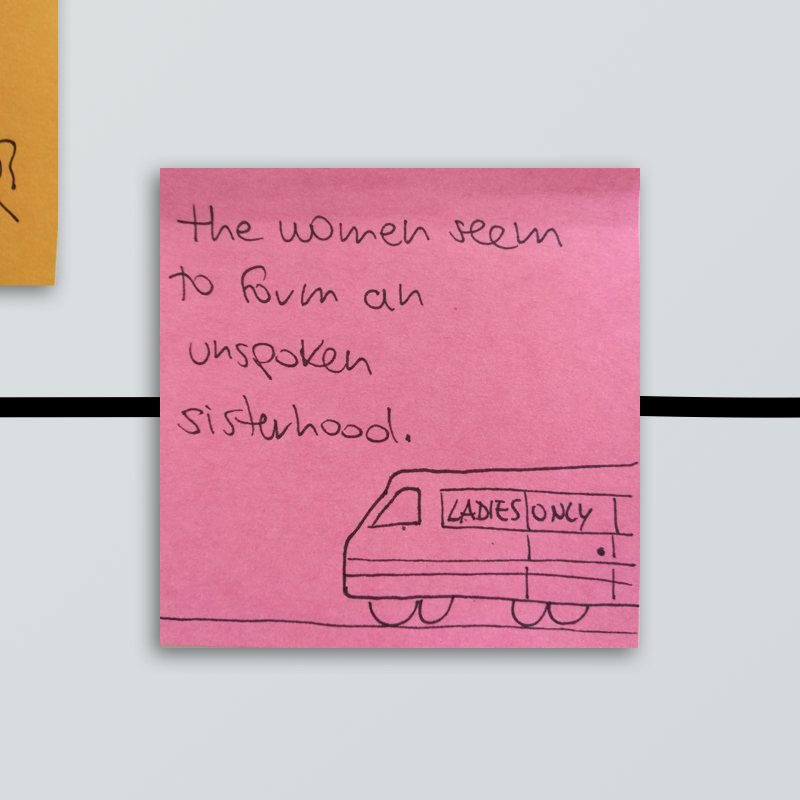 the women seem
to form an
unspoken
sisterhood.
LADIES ONLY